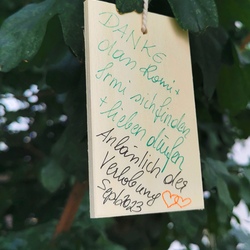 DANKE
dass Romi +
Irmi sich finden
+ lieben dürfen
Anlässlich der
Verlobung
Sept. 2023